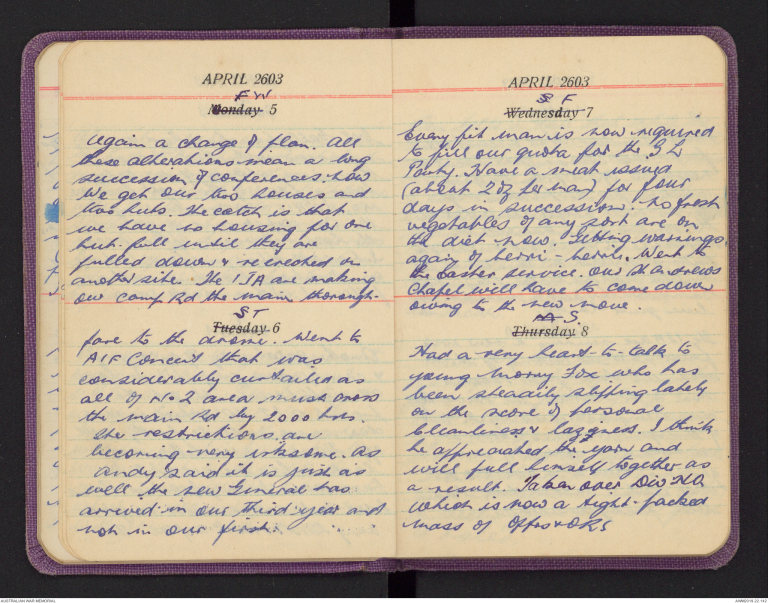 APRIL 2603
F W
Monday 5
Again a change of plan. All
these alterations mean a long
succession of conferences. Now
we get our two houses and
two huts. The catch is that
we have no housing for one
hut full until they are
pulled down & re erected on
another site. The IJA are making
our camp Rd the main thorough-
S T
Tuesday 6
fare to the drome. Went to
AIF Concert that was
considerably curtailed as
all of No 2 area must cross
the main Rd by 2000 hrs.
The restrictions are
becoming very irksome. As
Andy said it is just as
well the new General has
arrived in our third year and
not in our first.
APRIL 2603
S F
Wednesday 7
Every fit man is now required
to fill our quota for the
Party. Have a meat issued
(about 2 oz per man) for four
days in succession. No fresh
vegetables of any sort are on
the diet now. Getting warnings
again of berri-berri. Went to
the Easter service. Our St Andrews
Chapel will have to come down
owing to the new move.
S.
Thursday 8
Had a very heart-to-talk to
young Morry Fox who has
been steadily slipping lately
on the score of personal
cleanliness & laziness. I think
he appreciated the yarn and
will pull himself together as
a result. Taken over Div HQ
which is now a tight-packed
mass of Offrs & ORs
AUSTRALIAN WAR MEMORIAL